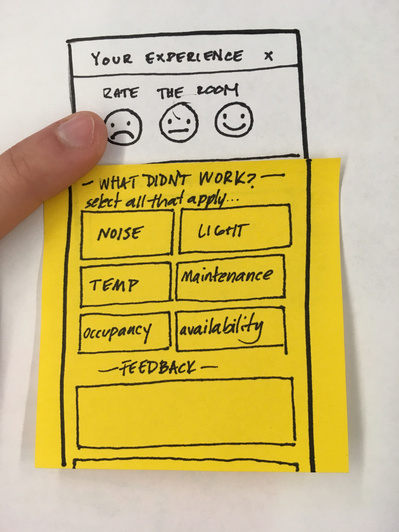 YOUR EXPERIENCE x
RATE THE ROOM
— WHAT DIDN'T WORK? —
select all that apply...
NOISE LIGHT
TEMP Maintenance
Occupancy availability
— FEEDBACK —